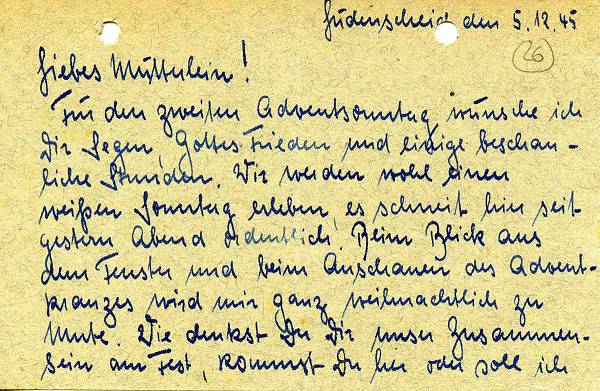 Lüdenscheid den 5.12.45
26
Liebes Mütterlein!
Für den zweiten Adventsonntag wünsche ich
Dir Segen, Gottes Frieden und einige beschau-
liche Stunden. Wir werden wohl einen
weißen Sonntag erleben, es schneit hier seit
gestern Abend ordentlich. Beim Blick aus
dem Fenster und beim Anschauen des Advent-
kranzes wird mir ganz weihnachtlich zu
Mute. Wie denkst Du Dir unser Zusammen-
sein am Fest, kommst Du her oder soll ich